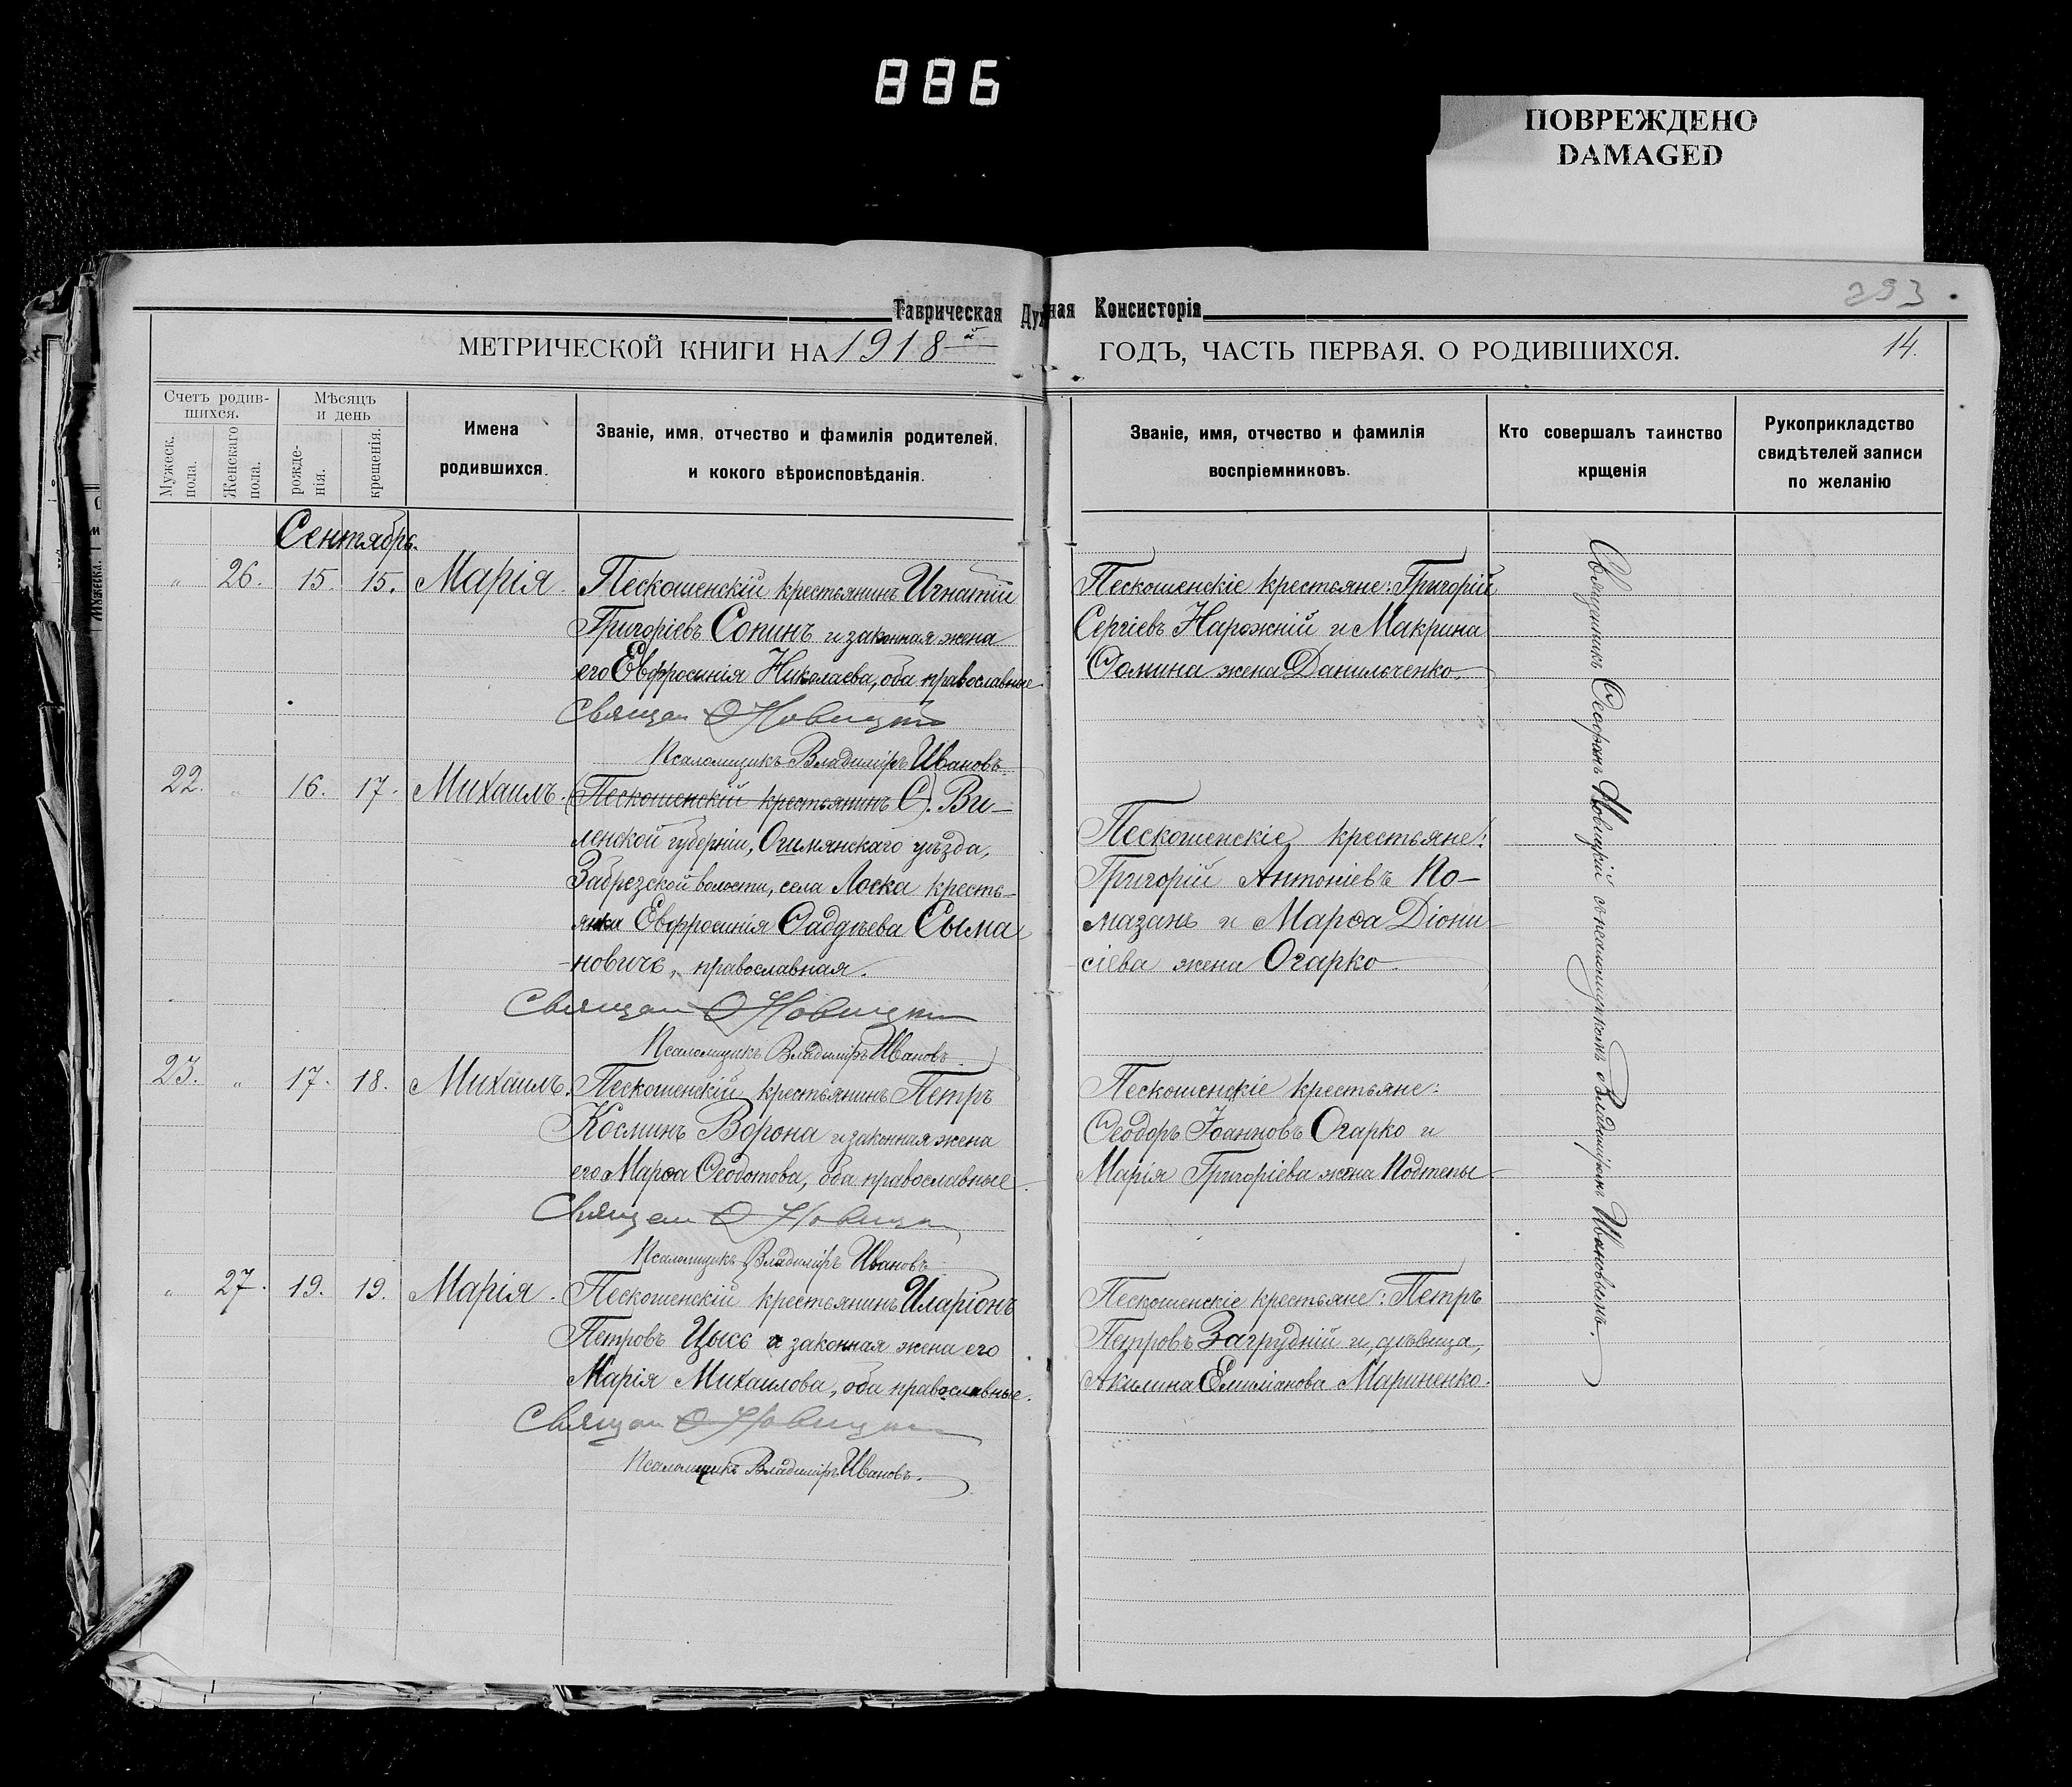 886
ПОВРЕЖДЕНО
DAMAGED
293
Таврическая Духная Консисторія
МЕТРИЧЕСКОЙ КНИГИ НА 1918й ГОДЪ, ЧАСТЬ ПЕРВАЯ, О РОДИВШИХСЯ.
14.
Счетъ родившихся.
Мужеск. пола.
Женскаго пола.
Мѣсяцъ и день
рожденія.
крещенія.
Имена родившихся.
Званіе, имя, отчество и фамилія родителей,
и кокого вѣроисповѣданія.
Званіе, имя, отчество и фамилія
воспріемниковъ.
Кто совершалъ таинство
крщенія
Рукоприкладство
свидѣтелей записи
по желанію
Сентябрь.
" 26. 15. 15. Марія. Пескошенскій крестьянинъ Игнатій
Григоріевъ Сопинъ и законная жена
его Евфросинія Николаева, оба православные
Священ Ѳ Новицкій
Псаломщикъ Владиміръ Ивановъ
Пескошенскіе крестьяне: Григорій
Сергіевъ Нарожній и Макрина
Ѳомина жена Данильченко.
22. " 16. 17. Михаилъ. (Пескошенскій крестьянинъ С). Ви-
ленской губерніи, Ошмянскаго уѣзда,
Забрезской волости, села Лоска кресть-
янка Евфросинія Ѳаддѣева Сыма
-новичъ, православная.
Священ Ѳ Новицкій
Псаломщикъ Владиміръ Ивановъ
Пескошенскіе крестьяне:
Григорій Антоніевъ По-
мазанъ и Марѳа Діони-
сіева жена Огарко.
23. " 17. 18. Михаилъ. Пескошенскій крестьянинъ Петръ
Косминъ Ворона и законная жена
его Марѳа Ѳеодотова, оба православные
Священ Ѳ Новицкій
Псаломщикъ Владиміръ Ивановъ
Пескошенскіе крестьяне:
Ѳеодоръ Іоанновъ Огарко и
Марія Григоріева жена Подтепы
" 27. 19. 19. Марія. Пескошенскій крестьянинъ Иларіонъ
Петровъ Цысь и законная жена его
Марія Михаилова, оба православные.
Священ Ѳ Новицкій
Псаломщикъ Владиміръ Ивановъ.
Пескошенскіе крестьяне: Петръ
Петровъ Загрудній и дѣвица,
Акилина Емиліанова Мариненко.
Священникъ Ѳеофанъ Новицкій съ псаломщикомъ Владиміромъ Ивановымъ.